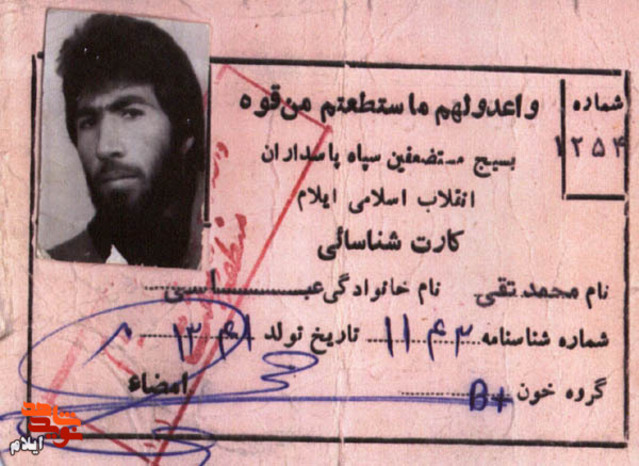 شماره
۱۲۵۴
واعدولهم ماستطعتم من قوه
بسیج مستضعفین سپاه پاسداران
انقلاب اسلامی ایلام
کارت شناسائی
نام محمدتقی نام خانوادگی عباسی
شماره شناسنامه ۱۱۴۳ تاریخ تولد ۱۳۴۱
گروه خون B+
امضاء
ایلام